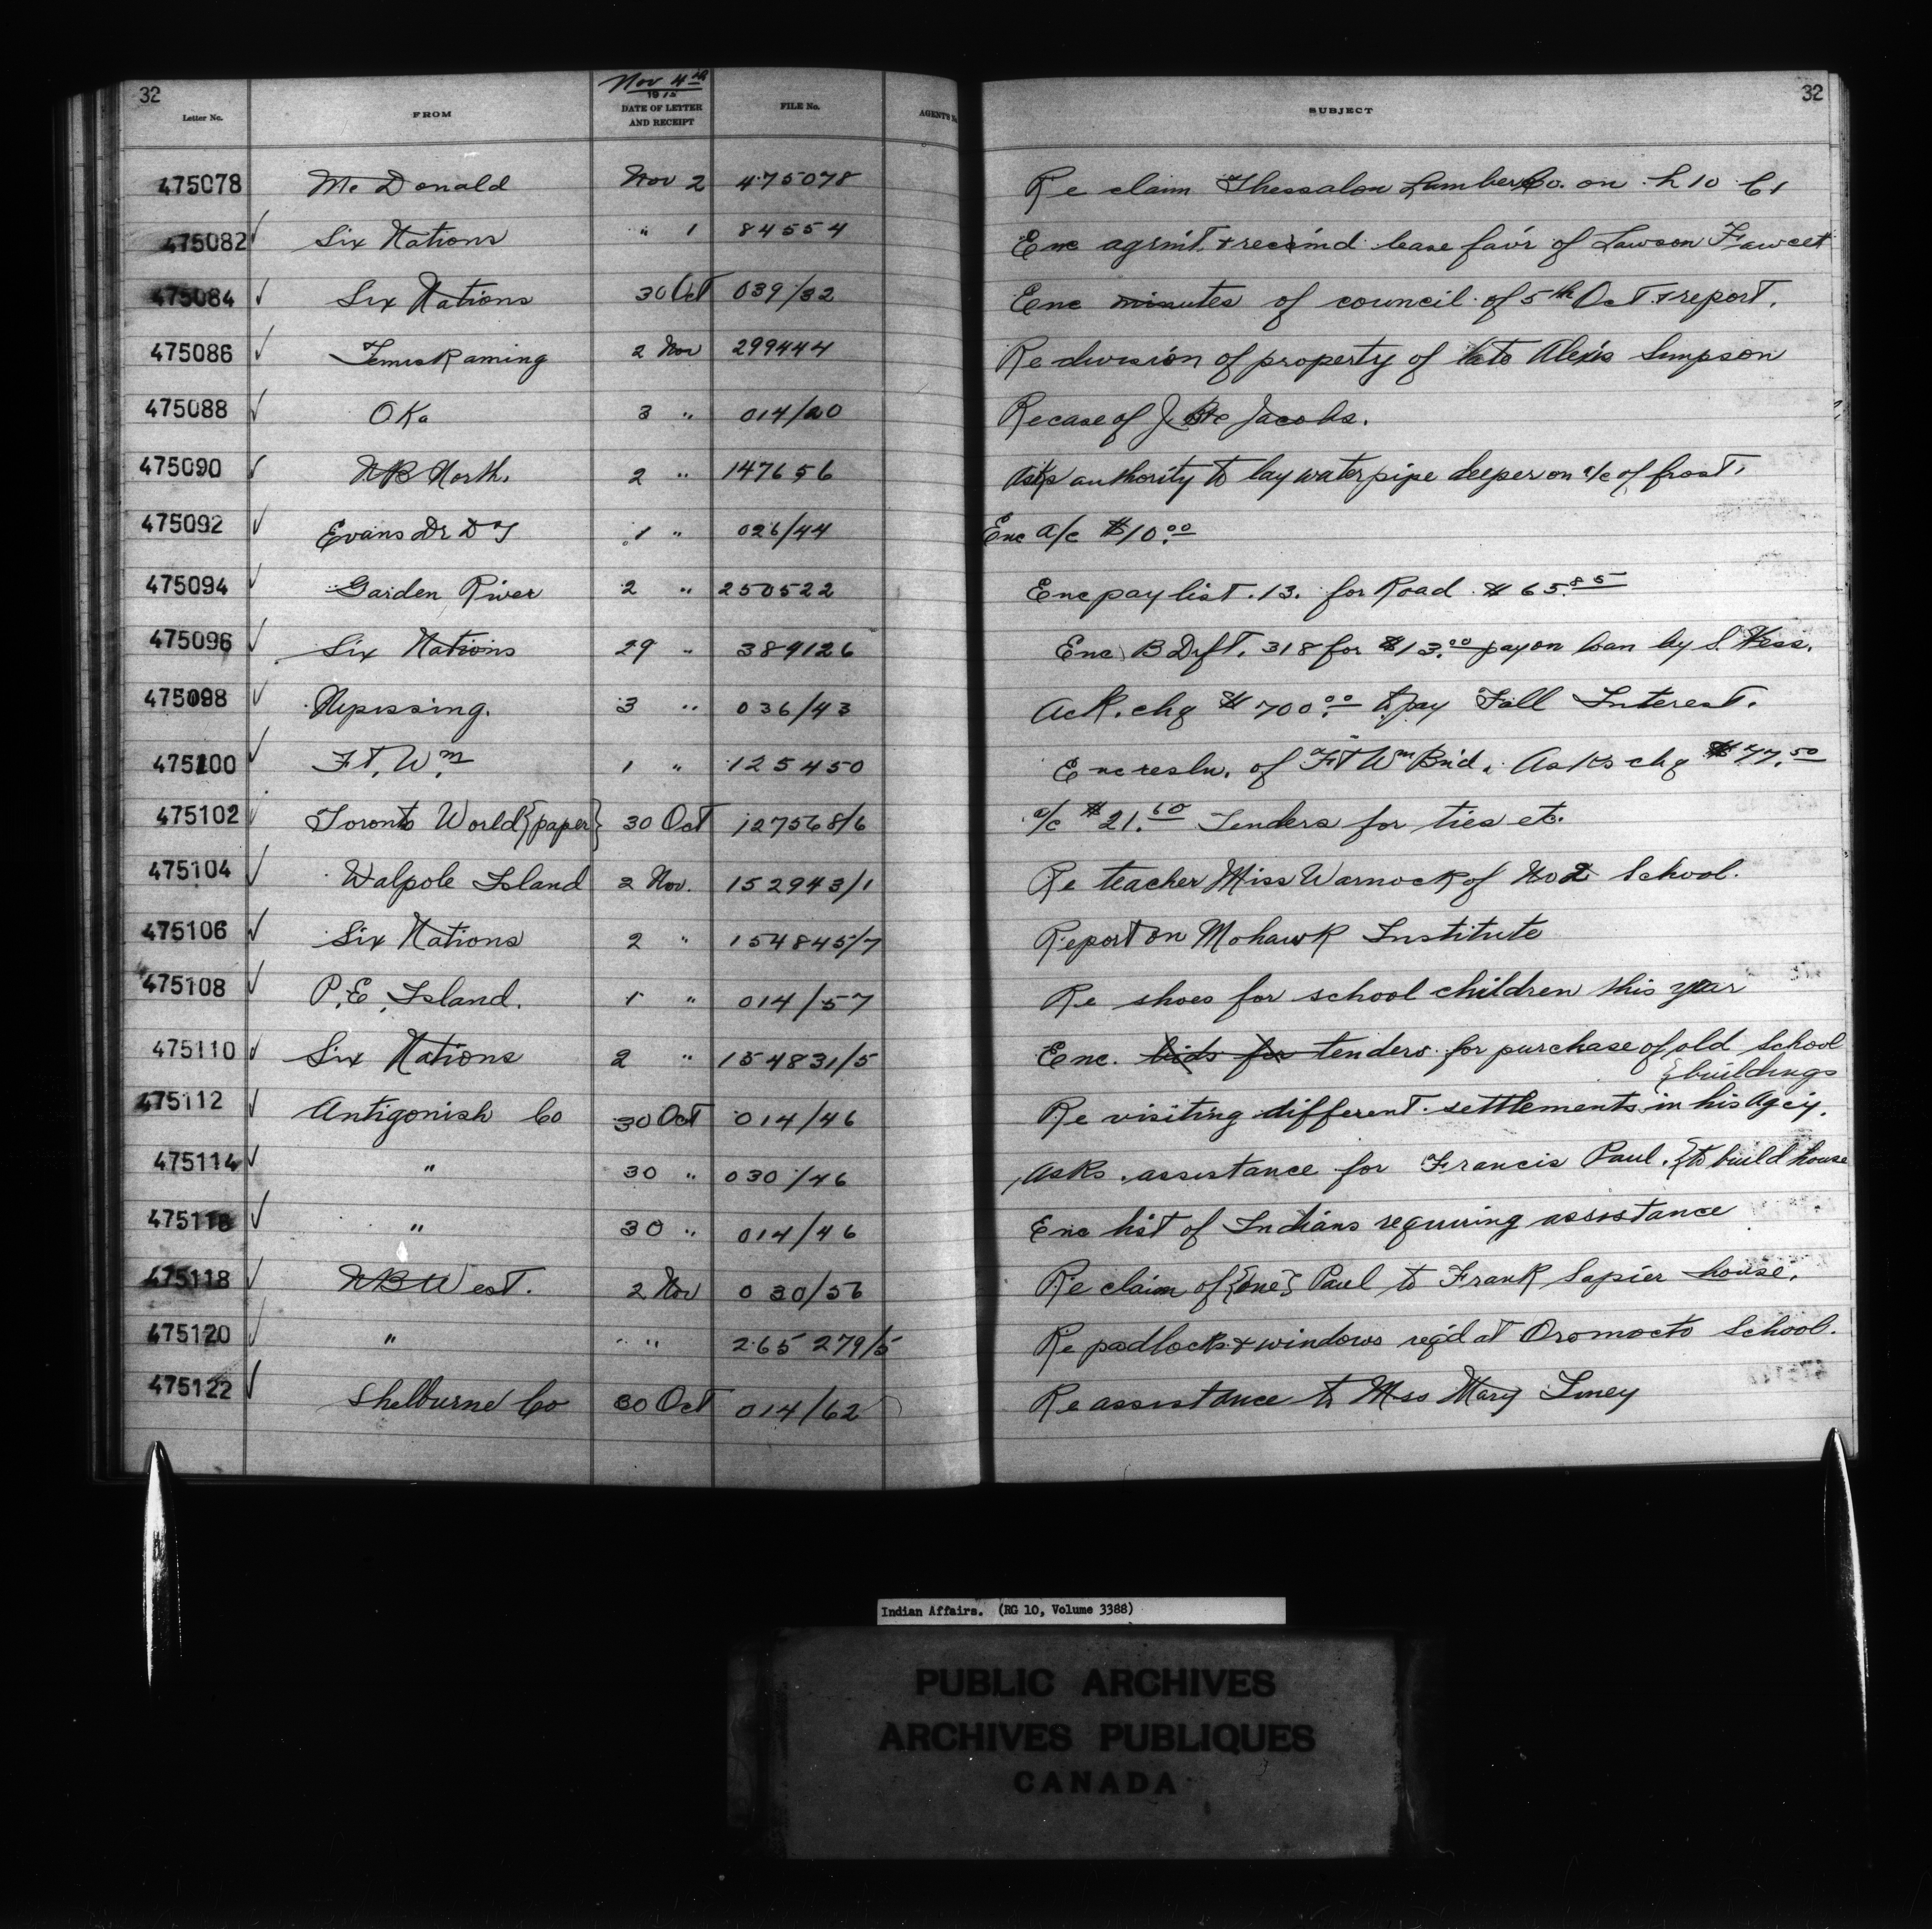 32
Nov 4th
1915
Letter No. FROM DATE OF LETTER AND RECEIPT FILE No. AGENT'S No. SUBJECT
32
475078 Mc Donald Nov 2 475078 Re claim Thessalon Lumber Co. on L 10 C 1
475082 ✓ Six Nations " 1 84554 Enc agrmt. + rescind lease fav'r of Lawson Fawcet
475084 ✓ Six Nations 30 Oct 039/32 Enc minutes of council of 5th Oct. + report.
475086 ✓ Temiskaming 2 Nov 299444 Re division of property of late Alexis Simpson
475088 ✓ Oka 3 " 014/20 Re case of J. Bte Jacobs.
475090 ✓ NB North. 2 " 147656 Asks authority to lay water pipe deeper on a/c of frost.
475092 ✓ Evans Dr D T 1 " 026/44 Enc a/c $10.00
475094 ✓ Garden River 2 " 250522 Enc pay list. 13. for Road $65.85
475096 ✓ Six Nations 29 " 389126 Enc B Drft. 318 for $13.00 pay on loan by S. Hess.
475098 ✓ Nipissing. 3 " 036/43 Ack. chq $700.00 to pay Fall Interest.
475100 ✓ Ft. Wm. 1 " 125450 Enc resln. of Ft Wm B'nd. Asks chq $77.50
475102 ✓ Toronto World {paper} 30 Oct 127568/6 a/c $21.60 Tenders for ties etc.
475104 ✓ Walpole Island 2 Nov. 152943/1 Re teacher Miss Warnock of No 2 School.
475106 ✓ Six Nations 2 " 154845/7 Report on Mohawk Institute
475108 ✓ P.E. Island. 1 " 014/57 Re shoes for school children this year
475110 ✓ Six Nations 2 " 154831/5 Enc. bids for tenders for purchase of old school
{buildings
475112 ✓ Antigonish Co 30 Oct 014/46 Re visiting different settlements in his Agcy.
475114 ✓ " 30 " 030/46 Asks assistance for Francis Paul. {to build house
475116 ✓ " 30 " 014/46 Enc list of Indians requiring assistance
475118 ✓ NB West. 2 Nov 030/56 Re claim of {one} Paul to Frank Sapier house.
475120 ✓ " " 265279/5 Re padlocks + windows req'd at Oromocto School.
475122 ✓ Shelburne Co 30 Oct 014/62 Re assistance to Mary
Indian Affairs. (RG 10, Volume 3388)
PUBLIC ARCHIVES
ARCHIVES PUBLIQUES
CANADA